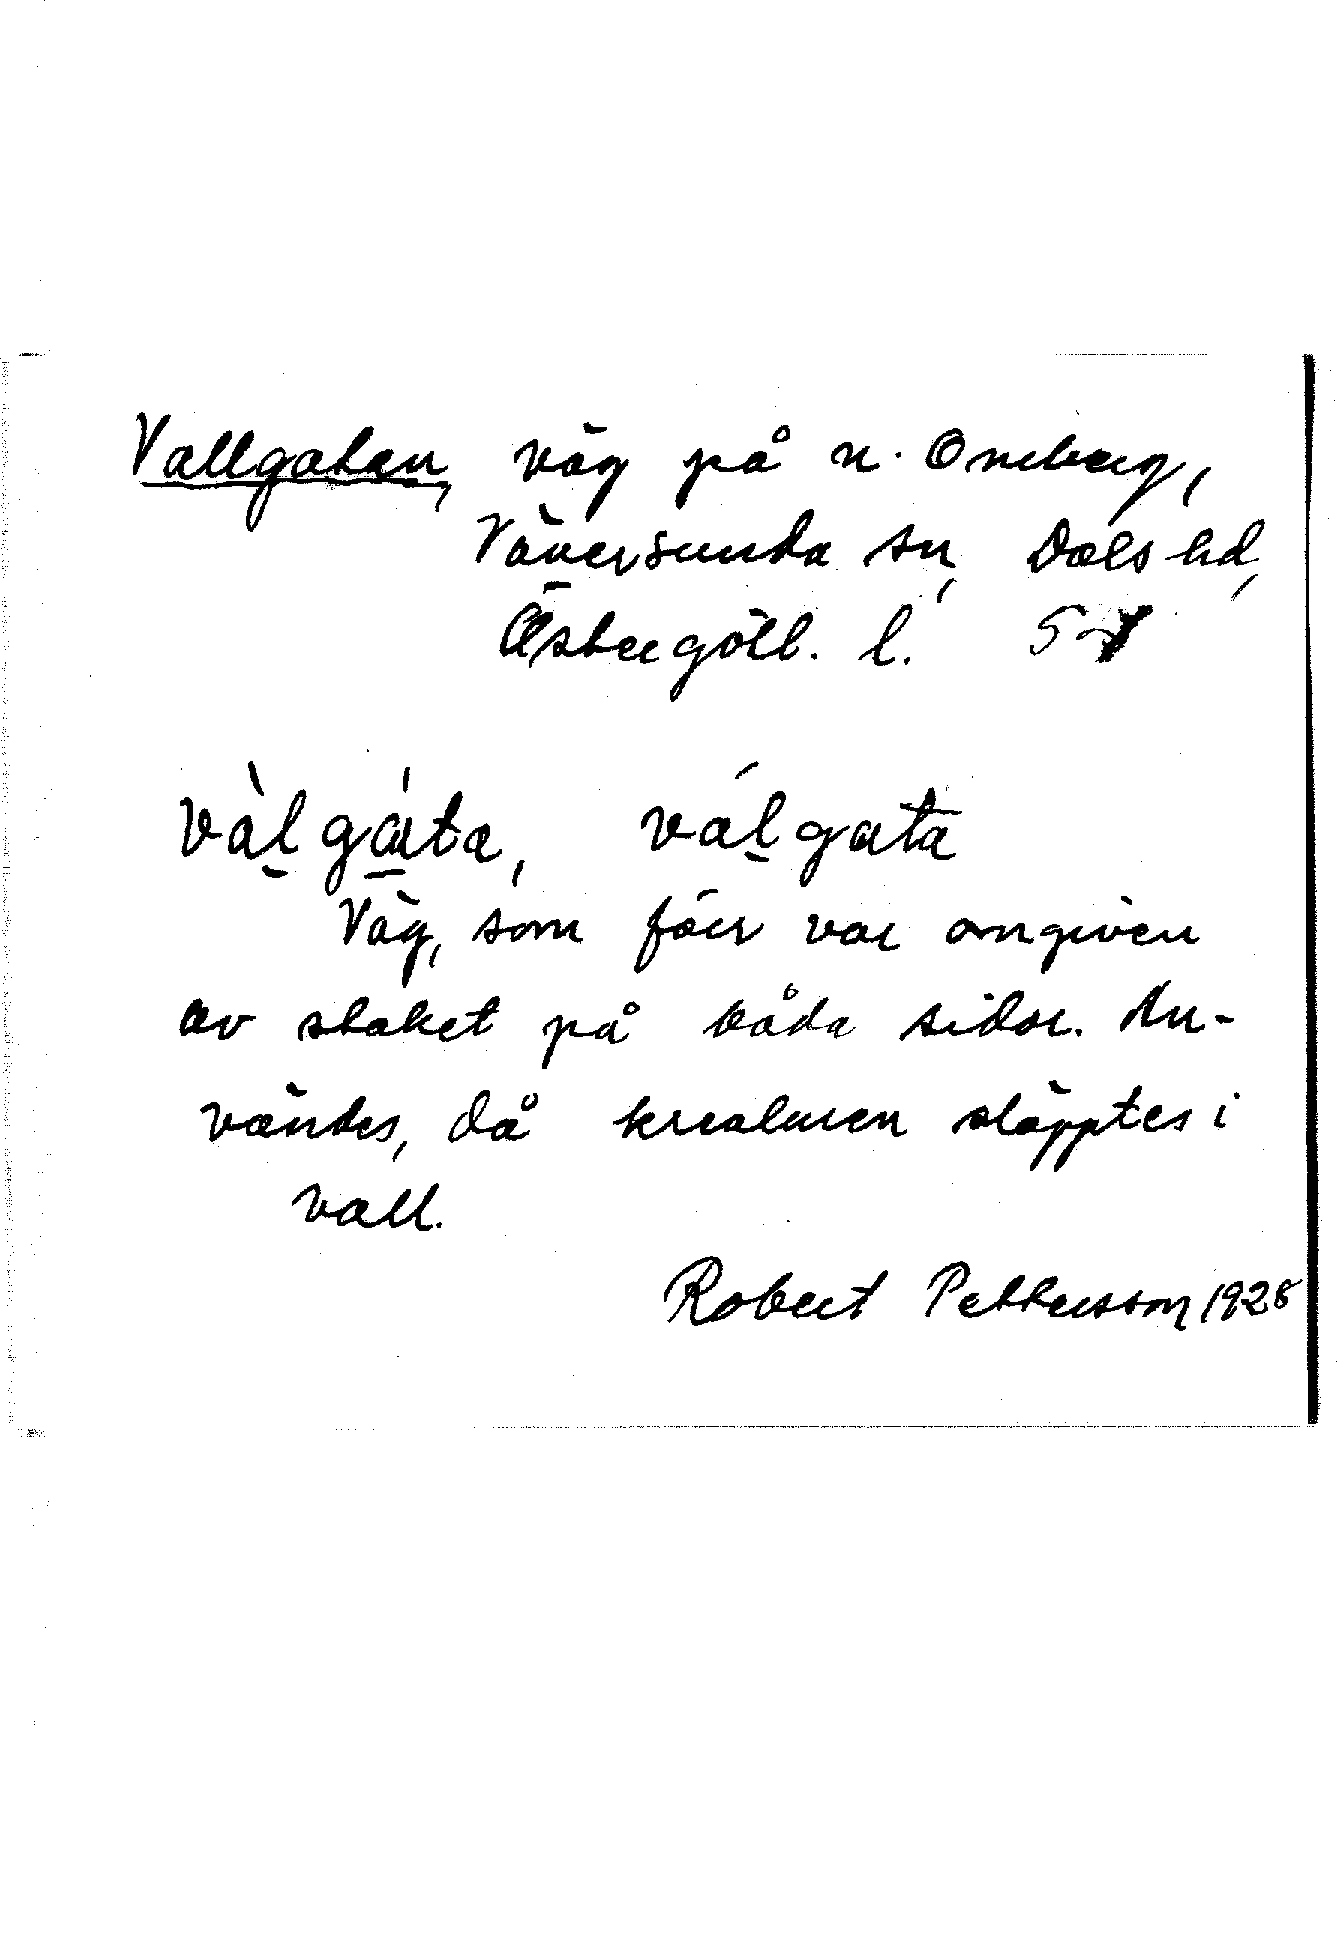 Vallgatan, väg på n. Omberg,
Väversunda sn, Dals hd,
Östergötl. l.
vàlgáta,válgata
Väg, som förr var omgiven
av staket på båda sidor. An-
vändes, då kreaturen släpptes i
vall.
Robert Pettersson 1928